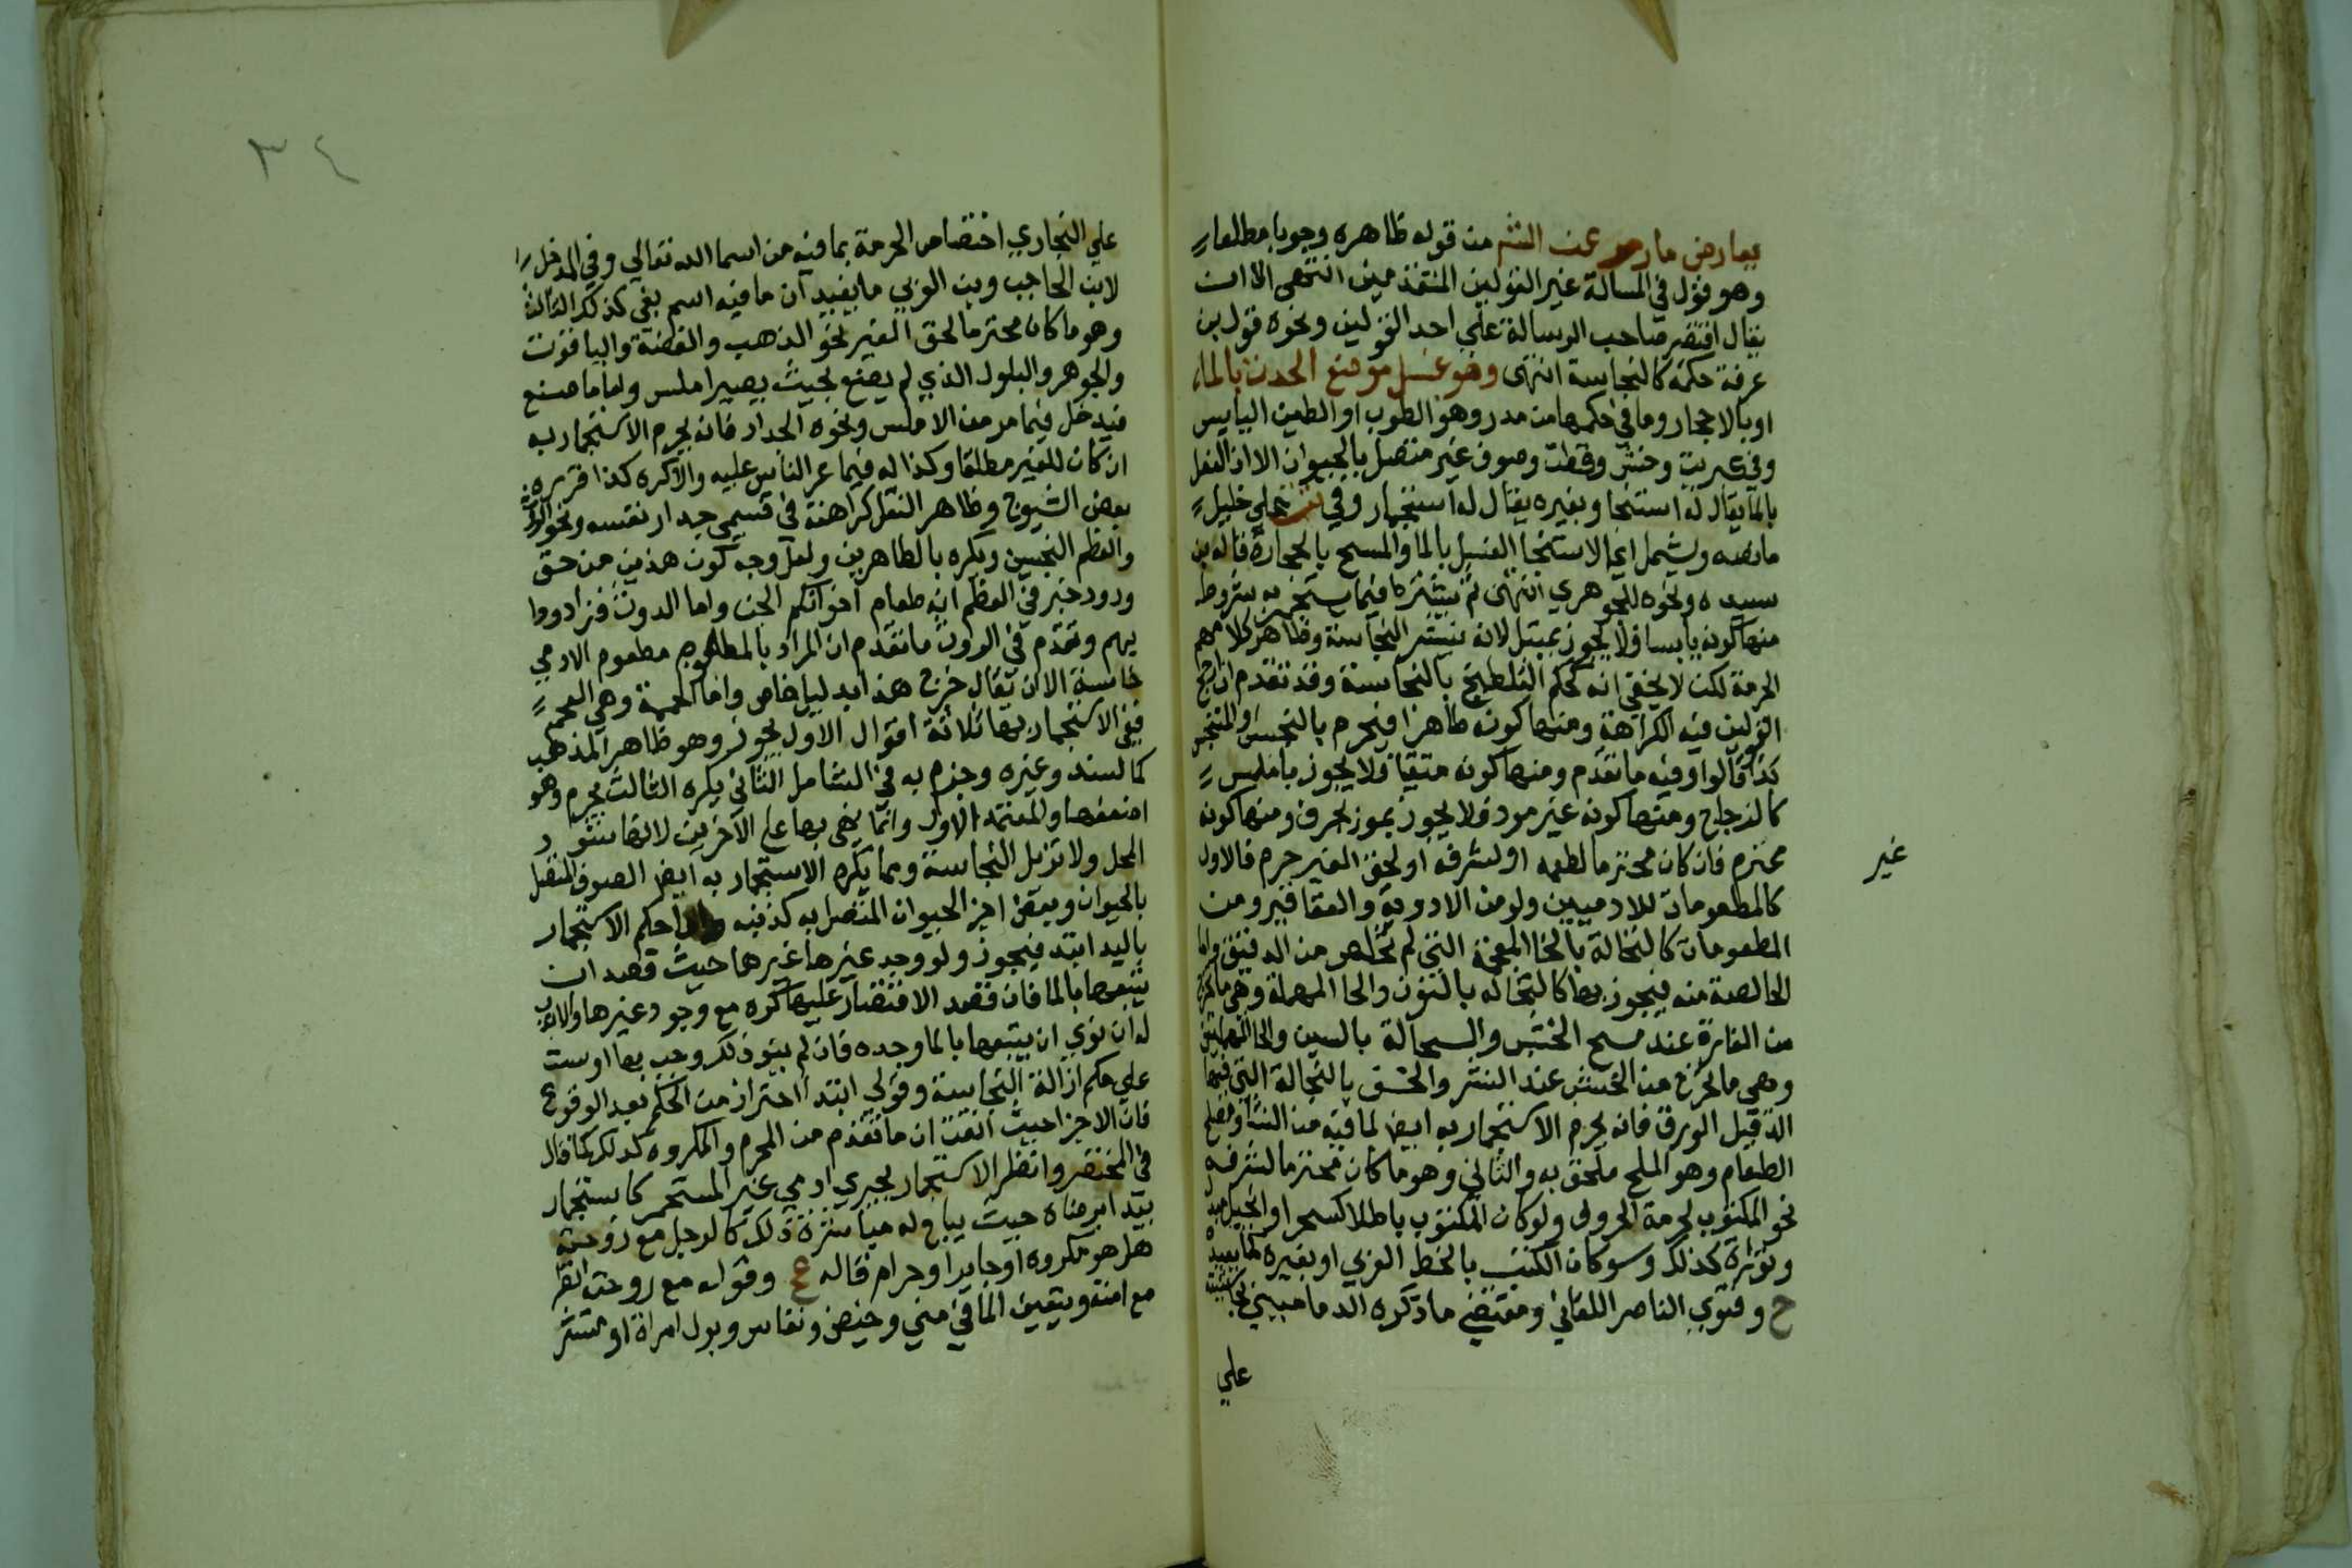 يعارض ما مر عن التتـ من قوله ظاهره وجوبا مطلقا
وهو قول في المسالة غير القولين المتقدمين انتهى الا ان
يقال اقتصر صاحب الرسالة علي احد القولين ونحوه قول بن
عرفة حكمه كالنجاسة انتهى وهو غسل موضع الحدث بالماء
او بالاحجار وما في حكمها من مدر وهو الطوب او الطين اليابس
وفي وخشب وقطن وصوف غير متصل بالحيوان الا ان الغسل
بالما يقال له استنجا وبغيره يقال له استجمار وفي علي خليل
ما نصه ويشمل الاستنجا الغسل بالما والمسح بالحجارة قاله بن
سيده ونحوه للجوهري انتهى ثم يشترط فيما يستجمر به شروط
منها كونه يابسا فلا يجوز بمبتل لانه ينشر النجاسة وظاهر كلامهم
الحرمة لكن لا يخفي انه كحكم التلطيخ بالنجاسة وقد تقدم ان ارجح
القولين فيه الكراهة ومنها كونه طاهرا فيحرم بالنجس والمتنجس
كذا قالوا وفيه ما تقدم ومنها كونه منقيا فلا يجوز باملس
كالزجاج ومنها كونه غير موذ فلا يجوز بموذ كحرف ومنها كونه
غير
محترم فان كان محترما لطعمه او لشرفه او لحق الغير حرم فالاول
كالمطعومات للادميين ولو من الادوية والعقاقير ومن
المطعومات كالنخالة بالخا المعجمة التي لم تخلص من الدقيق واما
الخالصة منه فيجوز بها كالنحاله بالنون والحا المهملة وهي ما تخرج
من الفارة عند مسح الخشب والسحالة بالسين والحا المهملتين
وهي ما تخرج من الخشب عند النشر بالنخالة التي فيها
الدقيق الورق فانه يحرم الاستجمار به ايضا لما فيه من النشا ومصلح
الطعام وهو الملح ملحق به والثاني وهو ما كان محترما لشرفه
نحو المكتوب لحرمة الحروف ولو كان المكتوب باطلا كسحر او انجيل
وتوراة كذلك وسوا كان الكتب بالخط العربي او بغيره كما يفيده
ح وفتوي الناصر اللقاني ومقتضي ما ذكره الدماميني
علي
٣٤
علي البخاري اختصاص الحرمة بما فيه من اسما الله تعالي وفي المدخل
لابن الحاجب وبن العربي ما يفيد ان ما فيه اسم نبي كذلك الثالث
وهو ما كان محترما لحق الغير نحو الذهب والفضة والياقوت
والجوهر والبلور الذي لم يصنع بحيث يصير املس واما ما صنع
فيدخل فيما مر من الاملس ونحوه الجدار فانه يحرم الاستجمار به
ان كان للغير مطلقا وكذا له فيما عر الناس عليه والا كره كذا قرره
بعض الشيوخ وظاهر النقل كراهته في قسمي جدار نفسه ونحو الروث
والعظم النجسين ويكره بالطاهرين ولعل وجه كون هذين من حق
ورود خبر في العظم انه طعام اخوانكم الجن واما الروث فزاد دوا
بهم وتقدم في الروث ما تقدم ان المراد بالمطعوم مطعوم الادمي
خاصة الا ان يقال خرج هذا بدليل خاص واما الحممة وهي الفحم
ففي الاستجمار بها ثلاثة اقوال الاول يجوز وهو ظاهر المذهب
كما لسند وغيره وجزم به في الشامل الثاني يكره الثالث يحرم وهو
اضعفها والمعتمد الاول وانما نهى بها علي الاخرين لانها تسود
المحل ولا تزيل النجاسة ومما يكره الاستجمار به ايضا الصوف المتصل
بالحيوان وببعض اجزا الحيوان المتصل به كذنبه واما حكم الاستجمار
باليد ابتدا فيجوز ولو وجد غيرها غيرها حيث قصد ان
يتبعها بالما فان قصد الاقتصار عليها كره مع وجود غيرها والا
له ان نوي ان يتبعها بالما وجده فان لم ينو ذلك وجب بها اوست
علي حكم ازالة النجاسة وقولي ابتدا احتراز من الحكم بعد الوقوع
فان الاجزا حيث انقت ان ما تقدم من المحرم والمكروه كذلك كما قال
في المختصر وانظر الاستجمار بجزي ادمي غير المستجمر كاستجمار
بيد ابرضاه حيث يباح له مباشرة ذلك كالرجل مع زوجته
هل هو مكروه او جايز او حرام قاله ع وقوله مع زوجته انظر
مع امته ويتعين الما في مني وحيض ونفاس وبول امراة او منتشر